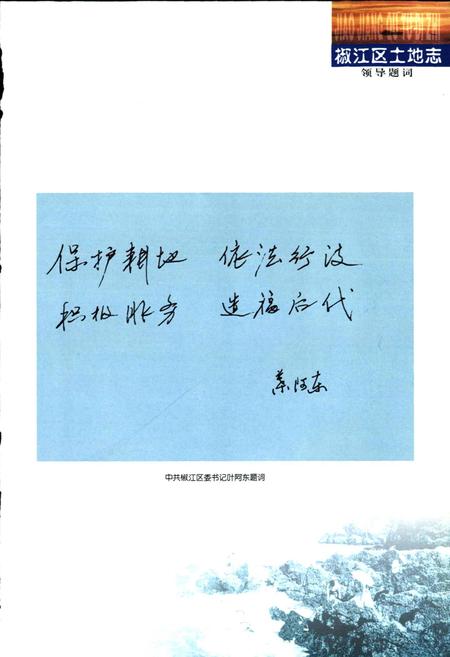 JIAO JIANG QU TU DI ZHI
椒江区土地志
领导题词
保护耕地 依法行政
积极服务 造福后代
叶阿东
中共椒江区委书记叶阿东题词